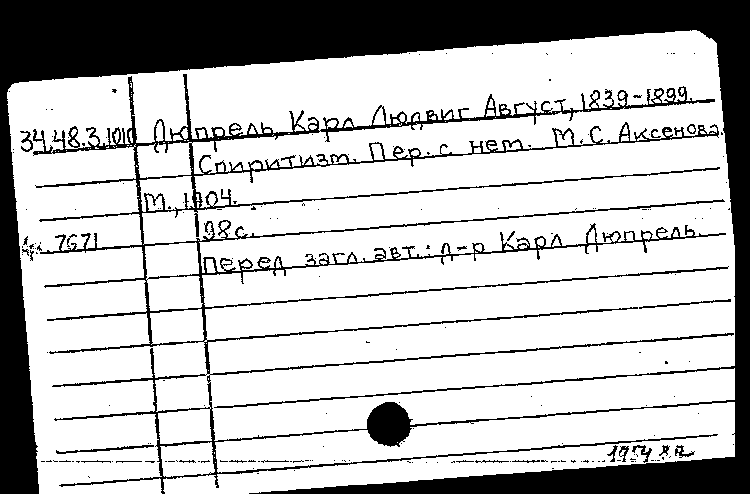 34.48.3.1010 Дюпрель, Карл Людвиг Август, 1839-1899.
Спиритизм. Пер. с нем. М.С. Аксенова.
М., 1904.
98с.
7671
перед загл. авт.: д-р Карл Дюпрель.
1954